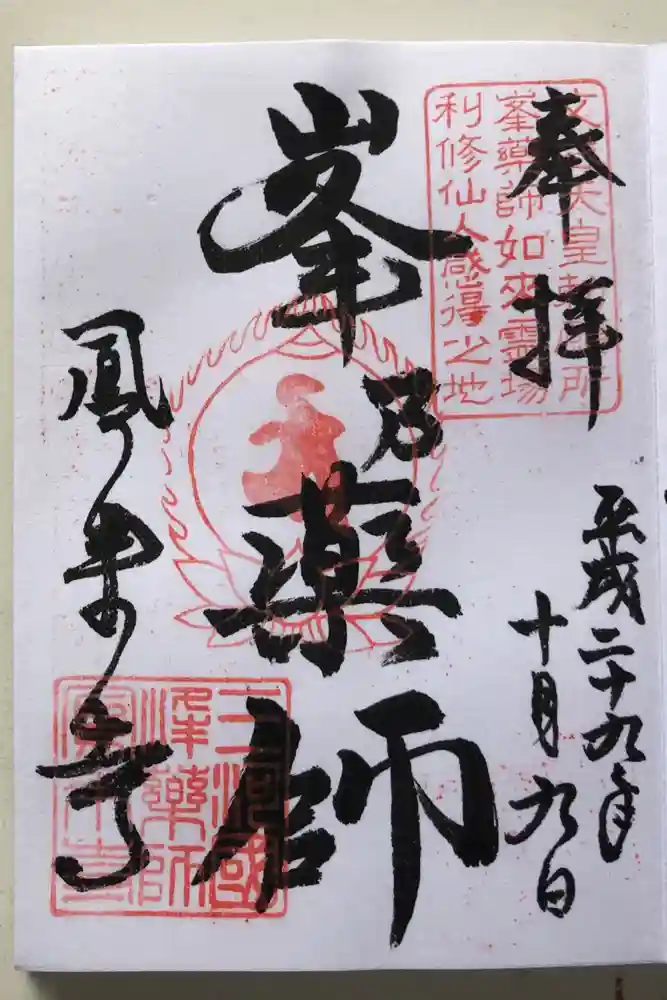 奉拝
天皇
所
峯薬師如來霊場
利修仙人感得之地
平成二十九年
十月九日
峯乃薬師
鳳来寺
三河國
峯薬師